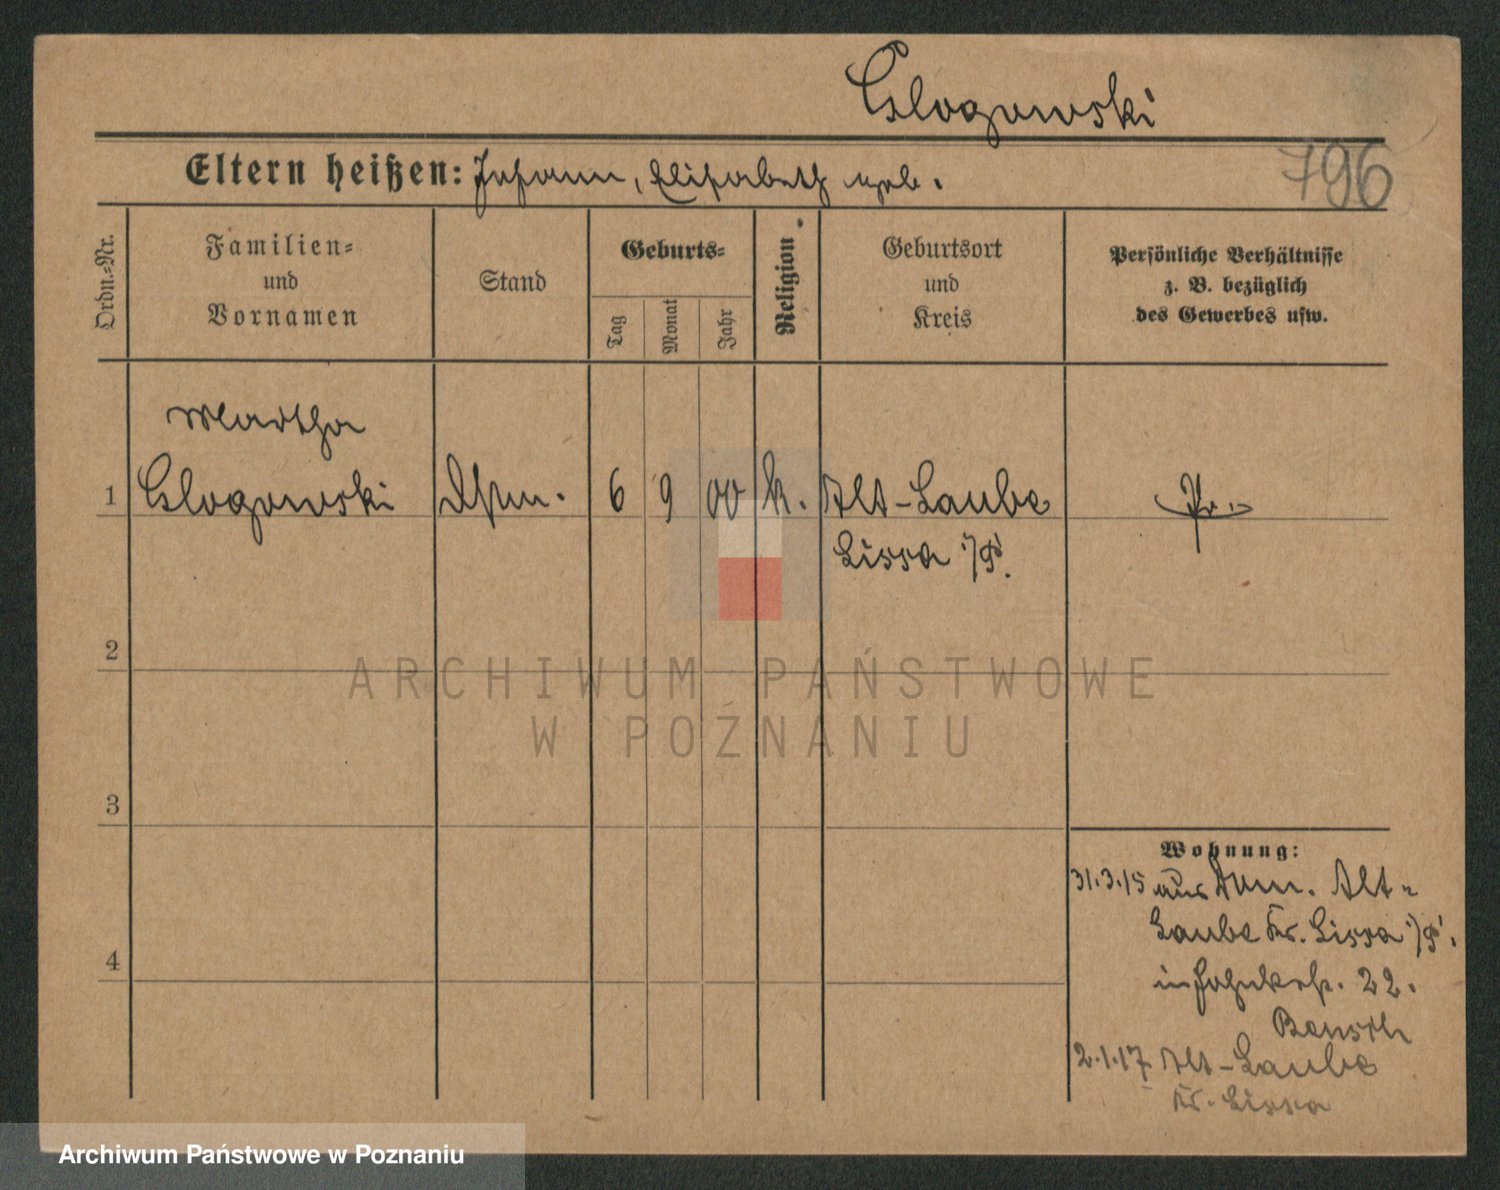 Glogowski
796
Eltern heißen: Johann, Elisabeth geb.
Ordn.-Nr.
Familien- und Vornamen
Stand
Geburts-
Tag
Monat
Jahr
Religion
Geburtsort und Kreis
Persönliche Verhältnisse z. B. bezüglich des Gewerbes usw.
Martha
1 Glogowski 6 9 00 k. Alt-Laube Pr.
Lissa i/P.
2
ARCHIWUM PAŃSTWOWE
W POZNANIU
3
Wohnung:
31.3.15 aus Dom. Alt-
Laube Kr. Lissa i/P.
4
in 22.
2.1.17 Alt-Laube
Kr. Lissa
Archiwum Państwowe w Poznaniu